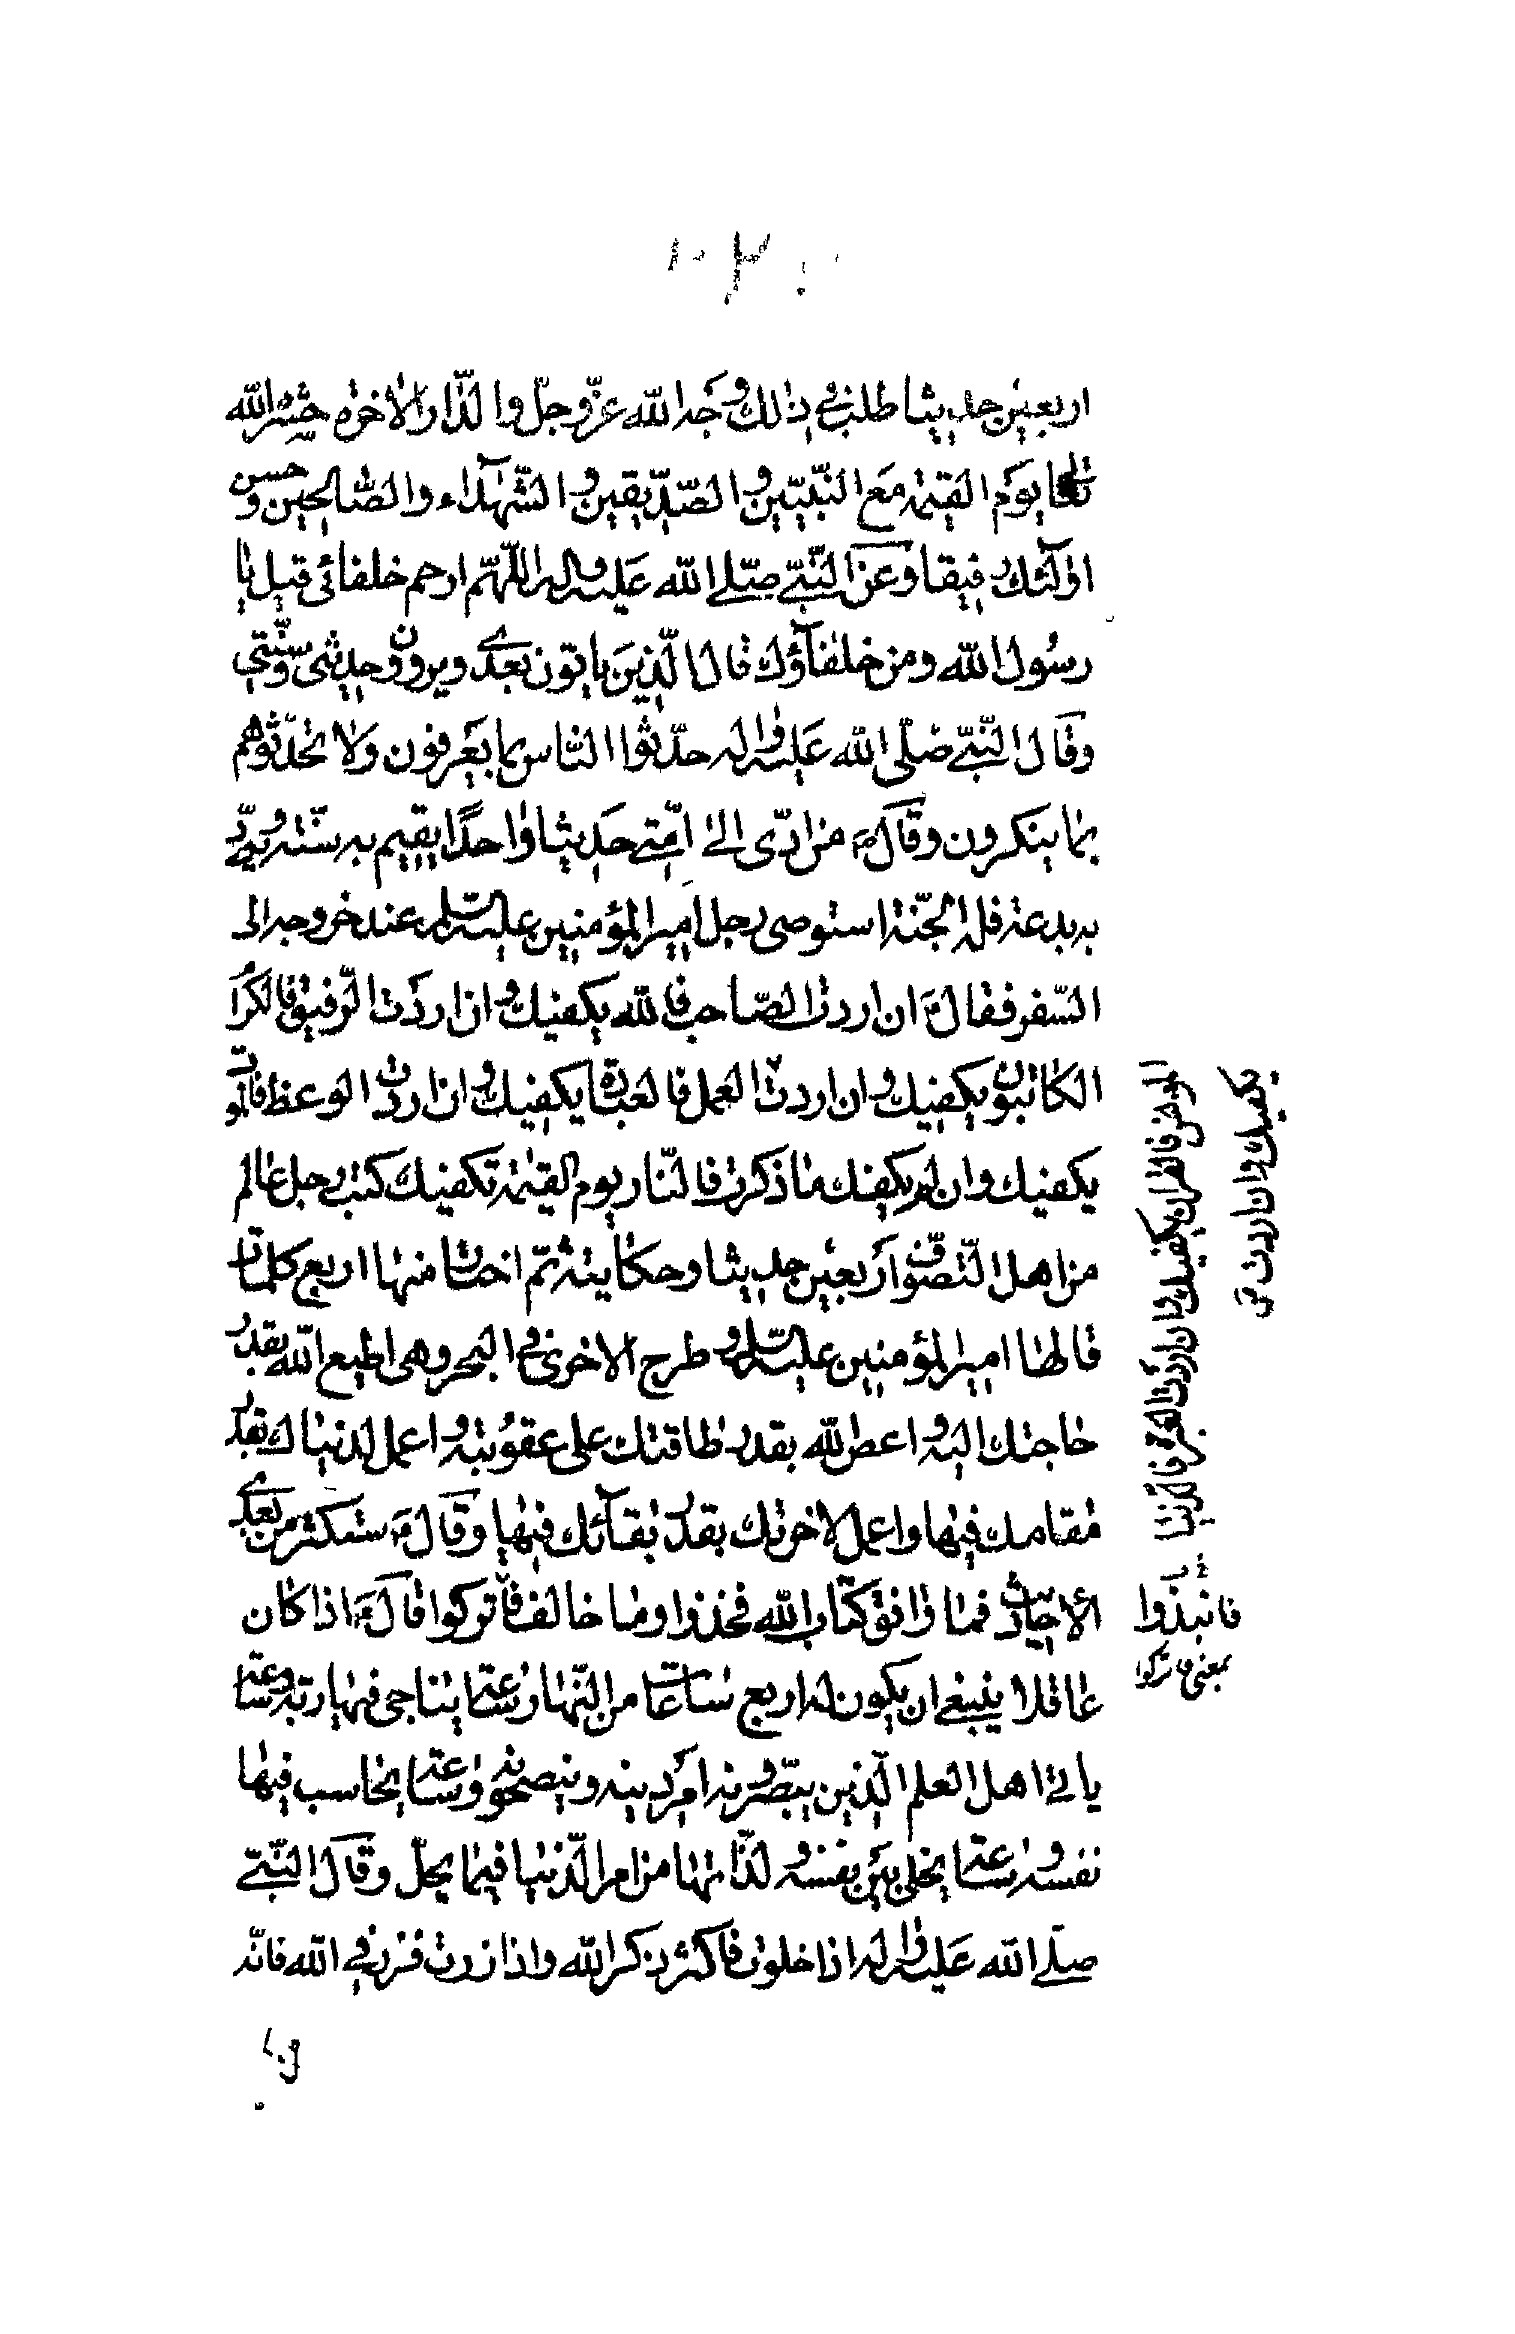 اربعين حديثا طلب في ذلك وجه الله عزّ وجلّ والدّار الاخرة حشره الله
تعالى يوم القيمة مع النّبيّين والصّدّيقين والشّهداء والصّالحين وحسن
اولئك رفيقا وعن النّبيّ صلّى الله عليه واله اللّهمّ ارحم خلفائى قيل يا
رسول الله ومن خلفآؤك قال الّذين ياتون بعدى ويروون حديثى وسنّتى
وقال النّبيّ صلّى الله عليه واله حدّثوا النّاس بما يعرفون ولا تحدّثوهم
بما ينكرون وقال من ادّى الى امّتى حديثا واحدا يقيم به سنّة ويردّ
به بدعة فله الجنّة استوصى رجل امير المؤمنين عليه السلم عند خروجه الى
السّفر فقال ان اردت الصّاحب فالله يكفيك وان اردت الرّفيق فالكرا
الكاتبون يكفيك وان اردت العمل فالعبادة يكفيك وان اردت الوعظ فالموت
يكفيك وان لم يكفك ما ذكرت فالنّار يوم القيمة تكفيك كتب رجل عالم
من اهل التّصوّف اربعين حديثا وحكاية ثمّ اختار منها اربع كلمات
قالها امير المؤمنين عليه السلم وطرح الاخرى في البحر وهى اطع الله بقدر
حاجتك اليه واعص الله بقدر طاقتك على عقوبته واعمل لدنياك بقدر
مقامك فيها واعمل لاخرتك بقدر بقآئك فيها وقال ستكثر من بعدى
الاحاديث فما وافق كتاب الله فخذوا وما خالف فاتركوا قال اذا كان
عاقلا ينبغى ان يكون له اربع ساعات من النّهار ساعة يناجى فيها ربّه وساعة
ياتى اهل العلم الّذين يبصّرونه امر دينه وينصحونه وساعة يحاسب فيها
نفسه وساعة يخلى بين نفسه ولذّاتها من امر الدّنيا فيما يحلّ وقال النّبيّ
صلّى الله عليه واله اذا خلوت فاكثر ذكر الله واذا زرت فزر في الله فانّه
يكفيك وان اردت
المونس فالقران يكفيك وان اردت العبرة فالدّنيا
فانبذوا
بمعنى فاتركوا